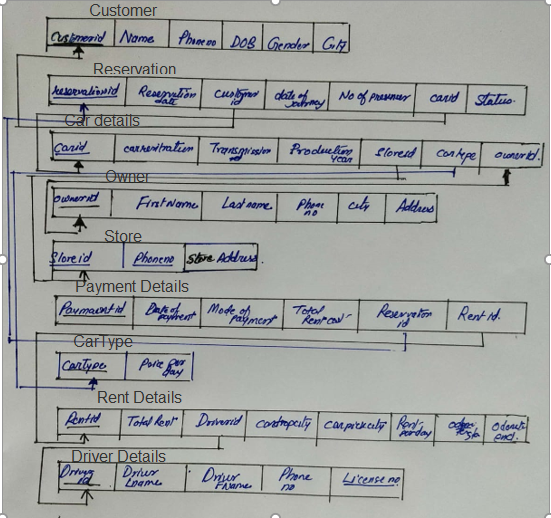 Customer
Customerid Name Phoneno DOB Gender City
Reservation
Reservationid Reservation date customer id date of journey No of presener carid Status.
Car details
Carid Production year Storeid cartype ownerId.
Owner
ownerid First Name Last name Phone no city Address
Store
Storeid Phoneno Store Address.
Payment Details
Date of payment Mode of Payment Total Reservation id Rent id.
CarType
CarType per day
Rent Details
Rentid Total Rent Driverid
Driver Details
Driver id Driver Lname Driver FName Phone no License no.